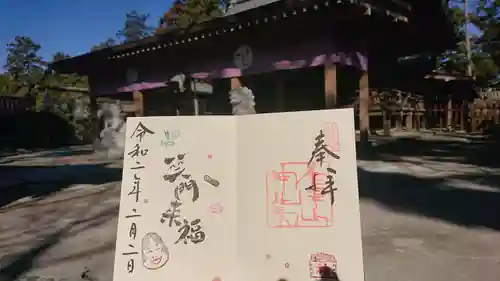 奉拝
笑門来福
令和二年二月二日